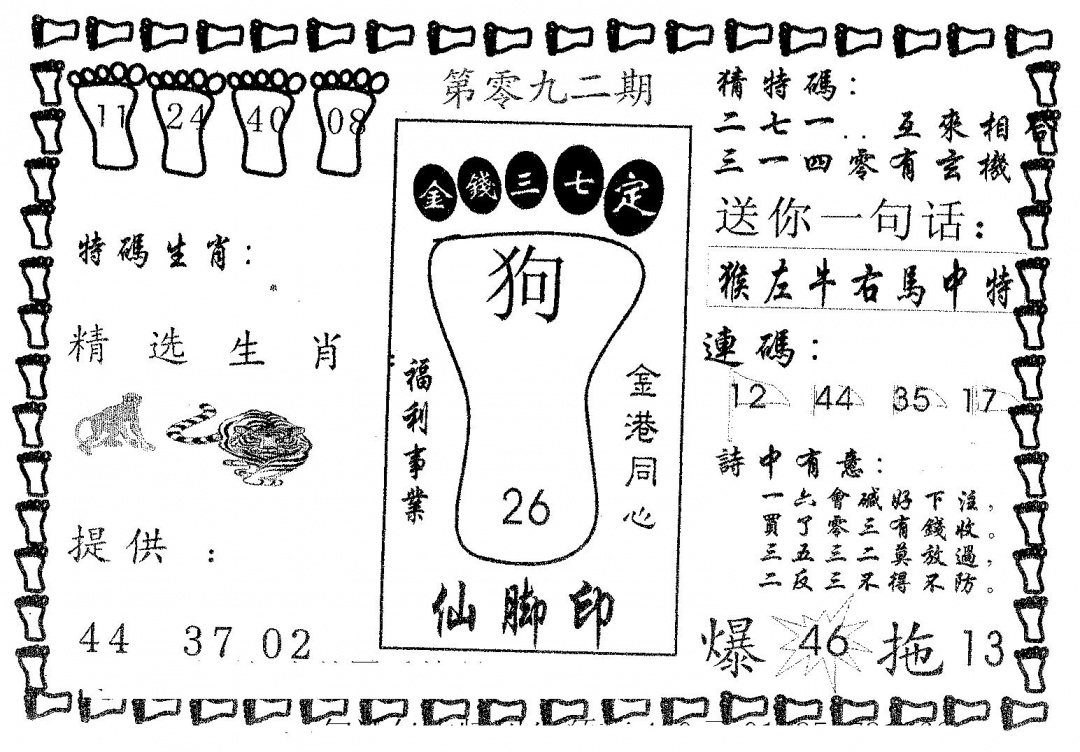 第零九二期
11 24 40 08
特碼生肖：
精选生肖：
提供：
44 37 02
金錢三七定
狗
26
福利事業
金港同心
仙脚印
猜特碼：
二七一..互來相合
三一四零有玄機
送你一句话：
猴左牛右馬中特
連碼：
12 44 35 17
詩中有意：
一六會碱好下注，
買了零三有錢收。
三五三二莫放過，
二反三不得不防。
爆 46 拖 13